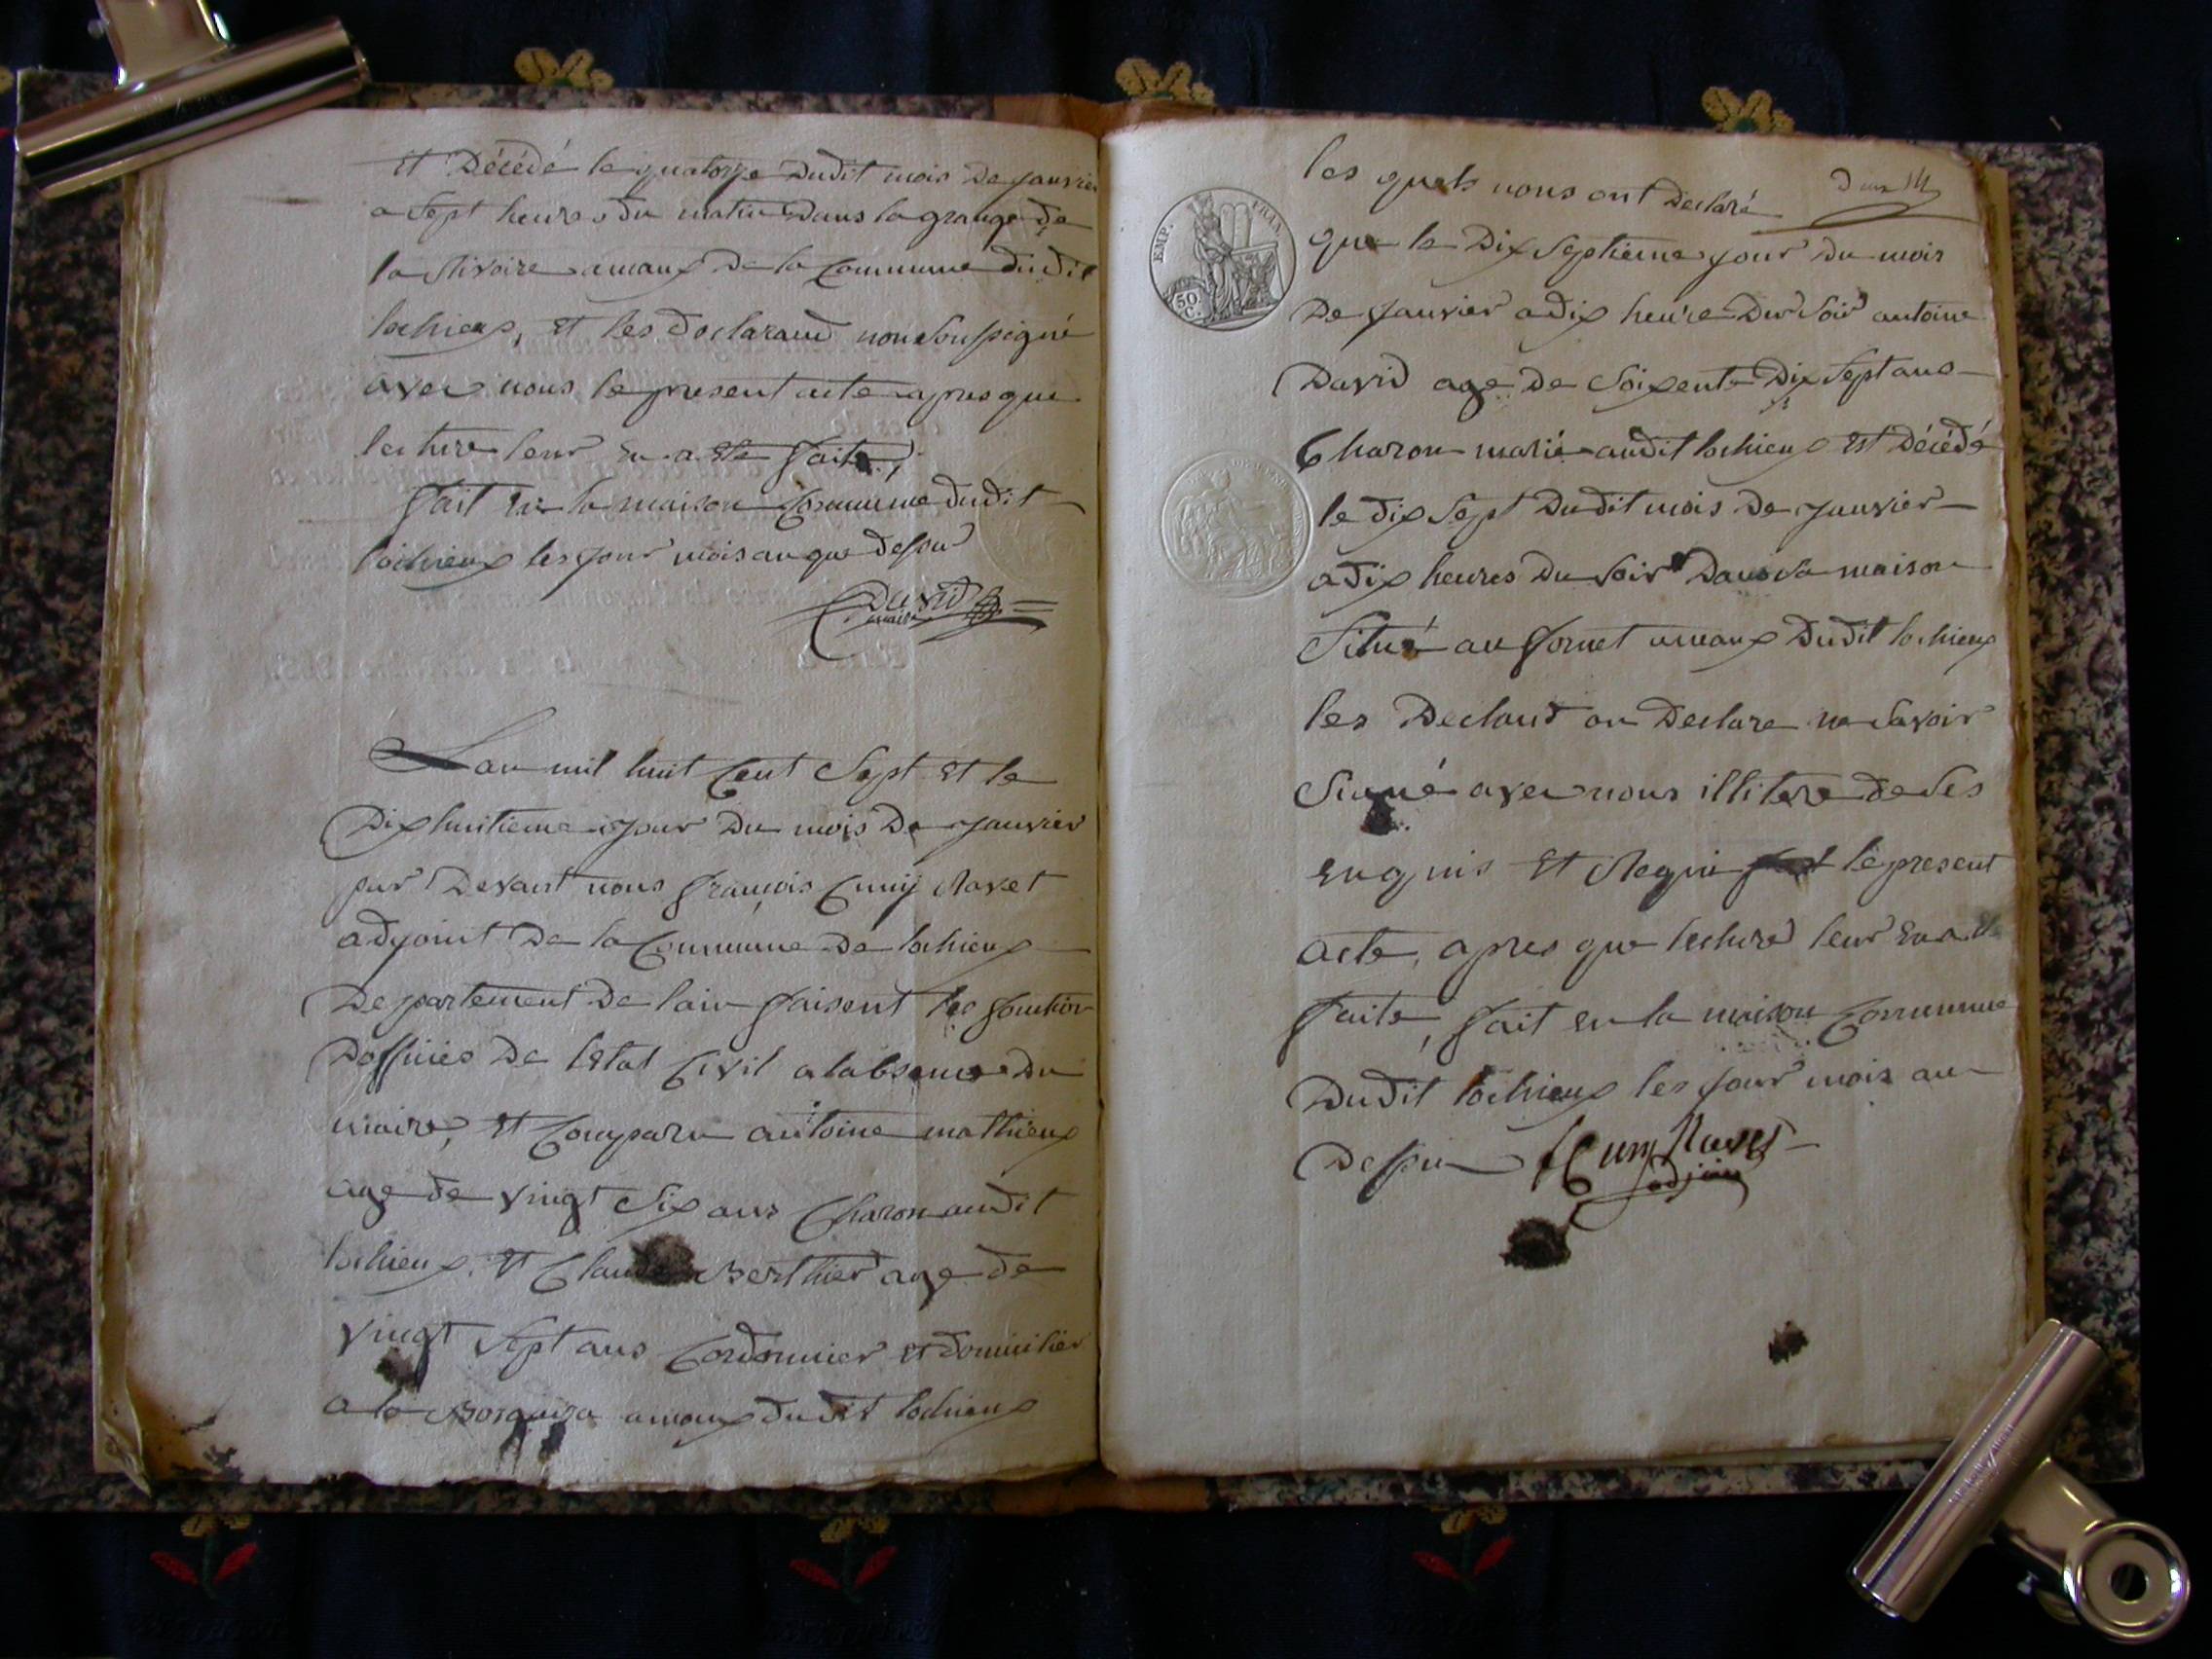 Et Décédé le quatorze Dudit mois De Janvier
a Sept heures du matin Dans la grange de
la Rivoire amaux De la Commune dudit
lochieux, et les declarand non Soussigné
avec nous le present acte apres que
lecture leur en a ete faite,
fait en la maison Commune dudit
lochieux les jour mois an que dessu
David
maire
Lan mil huit Cent Sept et le
Dix huitieme jour Du mois De Janvier
par Devant nous françois Cuny Ravet
adjoint De la Commune De lochieux
Departement De lain faisent les fontion
Dofficies De letat Civil a labsence Du
maire, et Comparu antoine mathieux
age de vingt Six ans Charon audit
lochieux, et Claude Berthier age de
vingt Sept ans Cordonnier et domicilier
a la amaux dudit lochieux
les quels nous ont Declaré
que le Dix Septieme jour Du mois
De Janvier a dix heure Du Soir antoine
David age De Soixente Dix Sept ans
Charon marié audit lochieux est Décédé
le dix Sept Dudit mois De Janvier
a dix heures Du Soir Dans Sa maison
Situé au fornet amaux Dudit lochieux
les Declarand on Declare ne Savoir
Siné avec nous illitere de Ses
enquis et Requi le present
acte, apres que lecture leur en a ete
faite, fait en la maison Commune
Dudit lochieux les jour mois an
Dessu
f Cuny Ravet
adjoint
EMP. FRAN.
50
C.